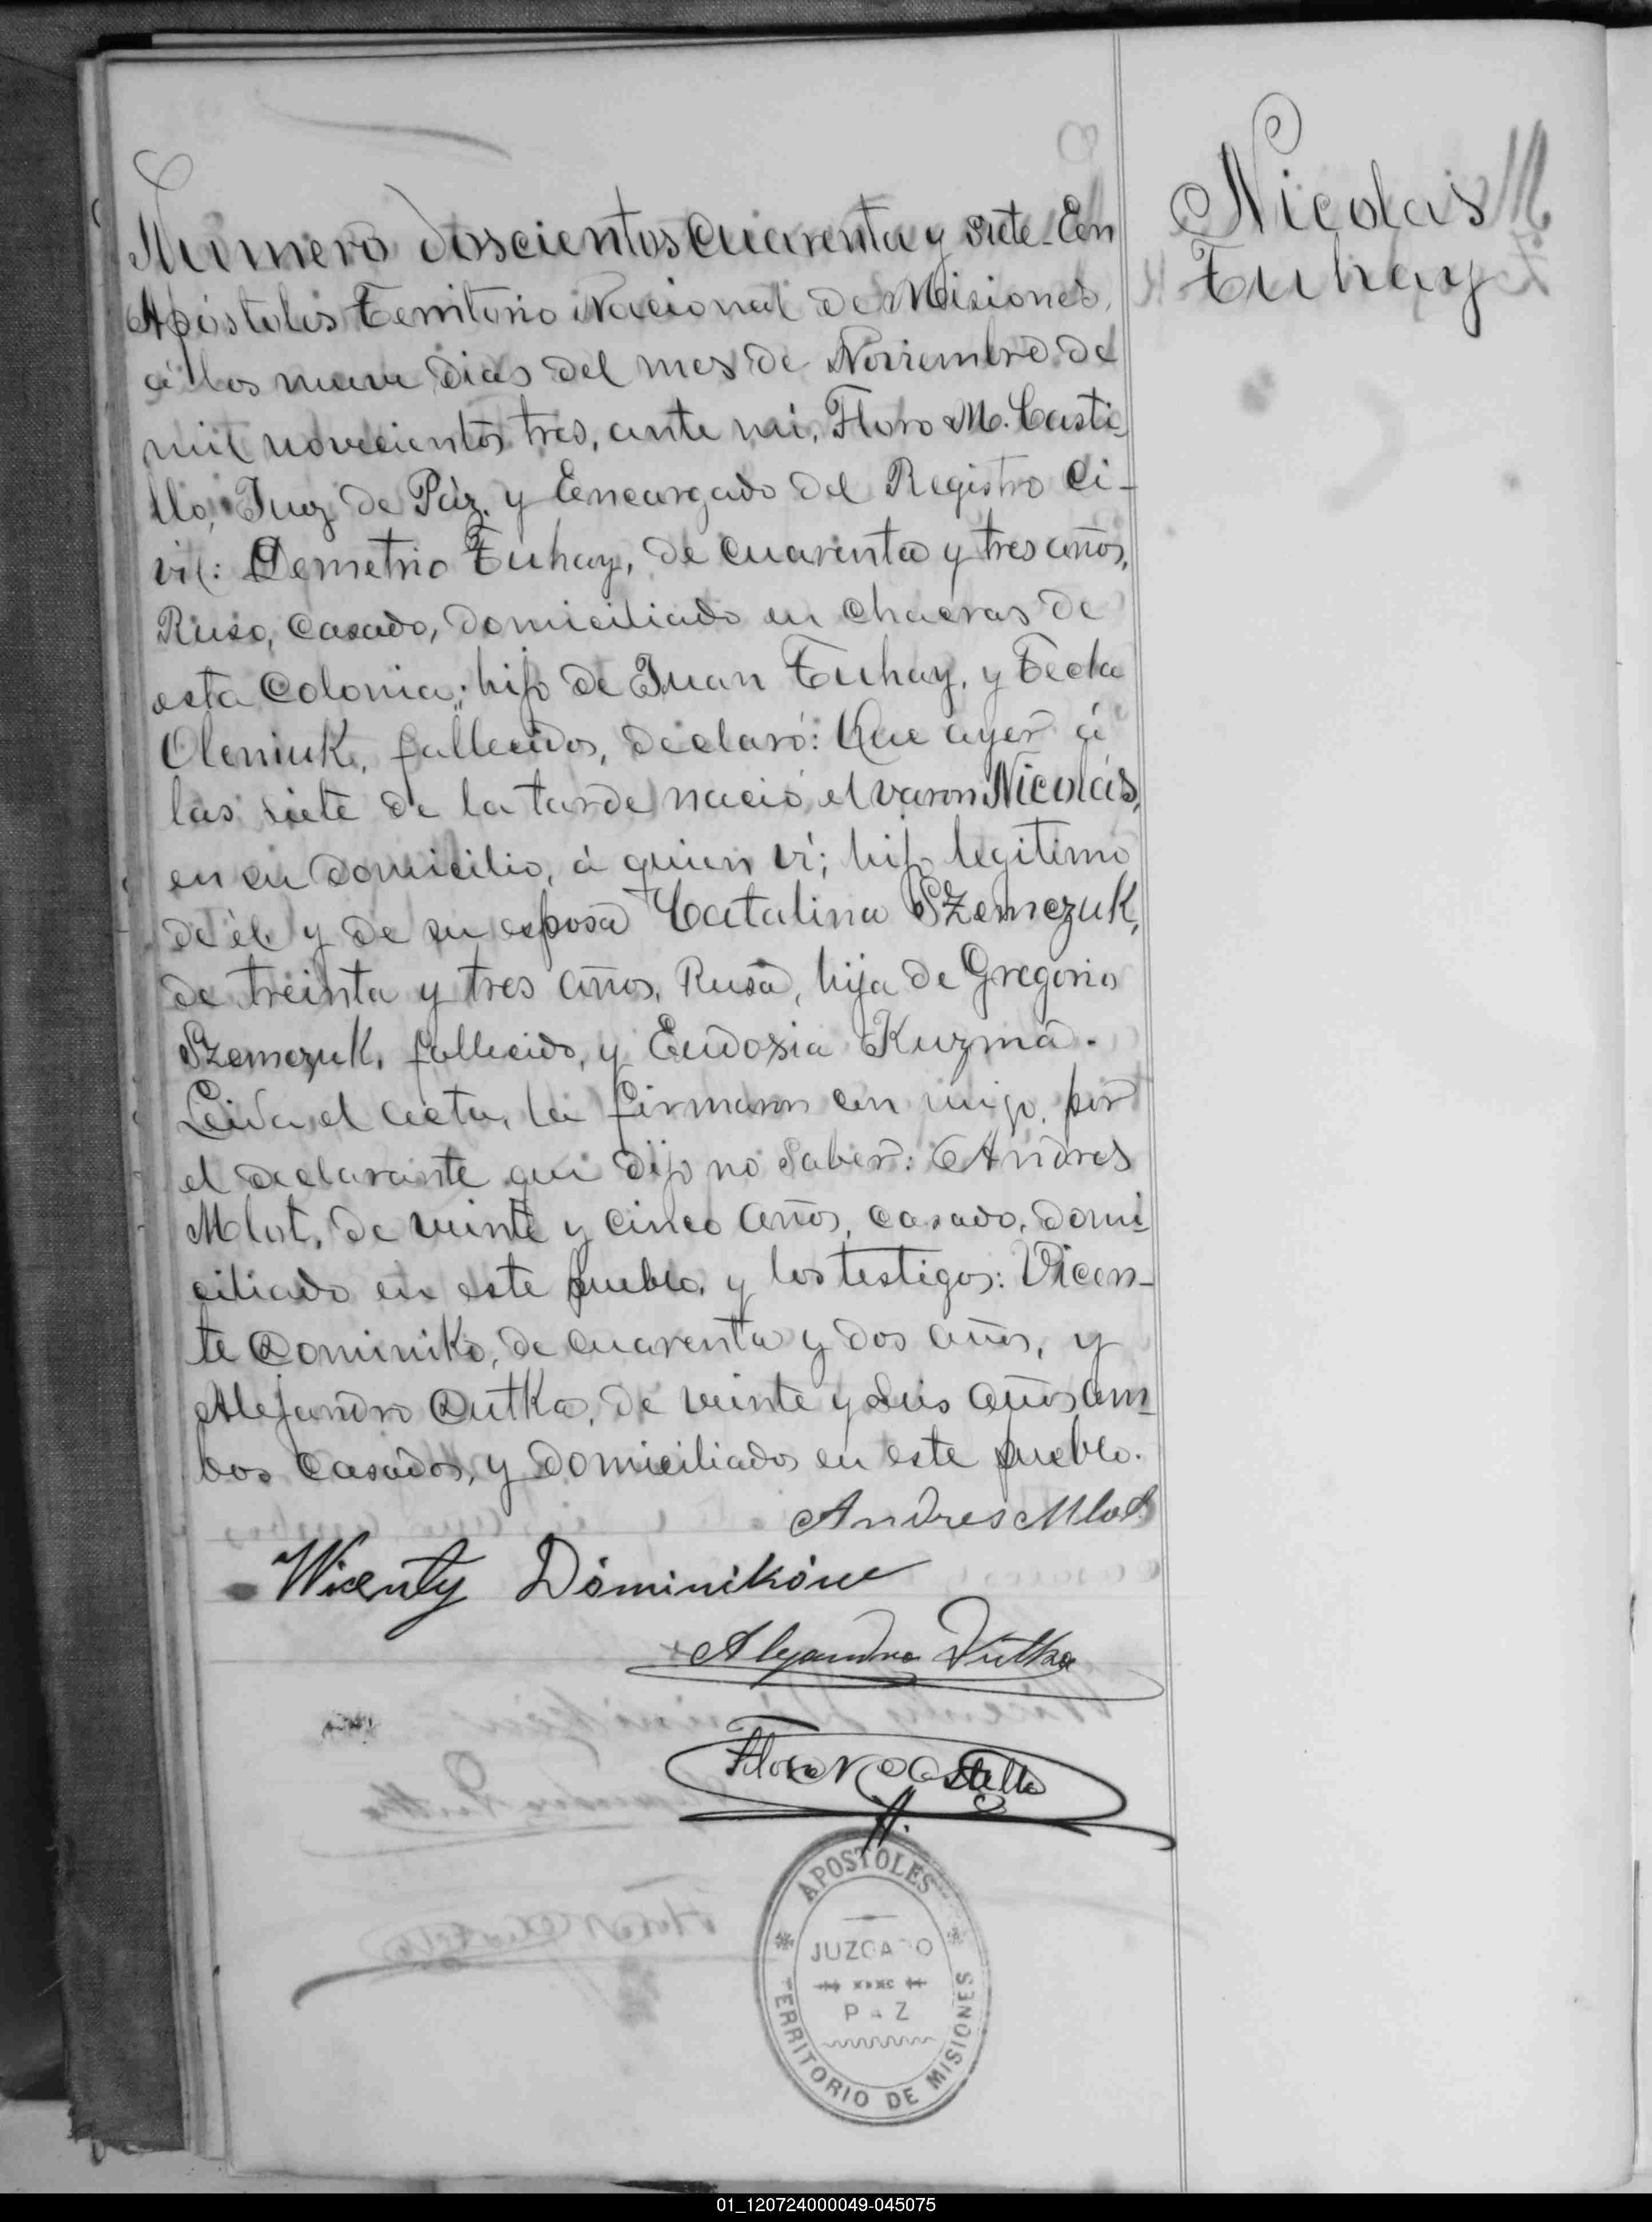 Nicolás
Tuhay
Número doscientos cuarenta y siete. En
Apóstoles Territorio Nacional de Misiones,
á los nueve dias del mes de Noviembre de
mil novecientos tres, ante mi, Floro M. Casti-
llo, Juez de Páz, y Encargado del Registro Ci-
vil: Demetrio Tuhay, de cuarenta y tres años,
Ruso, casado, domiciliado en chacras de
esta Colonia; hijo de Juan Tuhay, y Tecla
Oleniuk, fallecidos, declaró: Que ayer á
las siete de la tarde nació el varon Nicolás,
en su domicilio, á quien ví; hijo legitimo
de él y de su esposa Catalina Szemczuk,
de treinta y tres años, Rusa, hija de Gregorio
Szemczuk, fallecido, y Eudoxia Kuzma.
Leida el acta, la firmaron con migo, por
el declarante que dijo no saber: Andres
Mlot, de veinte y cinco años, casado, domi-
ciliado en este pueblo, y los testigos: Vicen-
te Dominiko, de cuarenta y dos años, y
Alejandro Dutka, de veinte y seis años am-
bos casados, y domiciliados en este pueblo.
Andres Mlot
Wicenty Dóminikóow
Alejandro Dutka
Floro M Castillo
APOSTOLES
JUZGADO
PAZ
TERRITORIO DE MISIONES
01_120724000049-045075